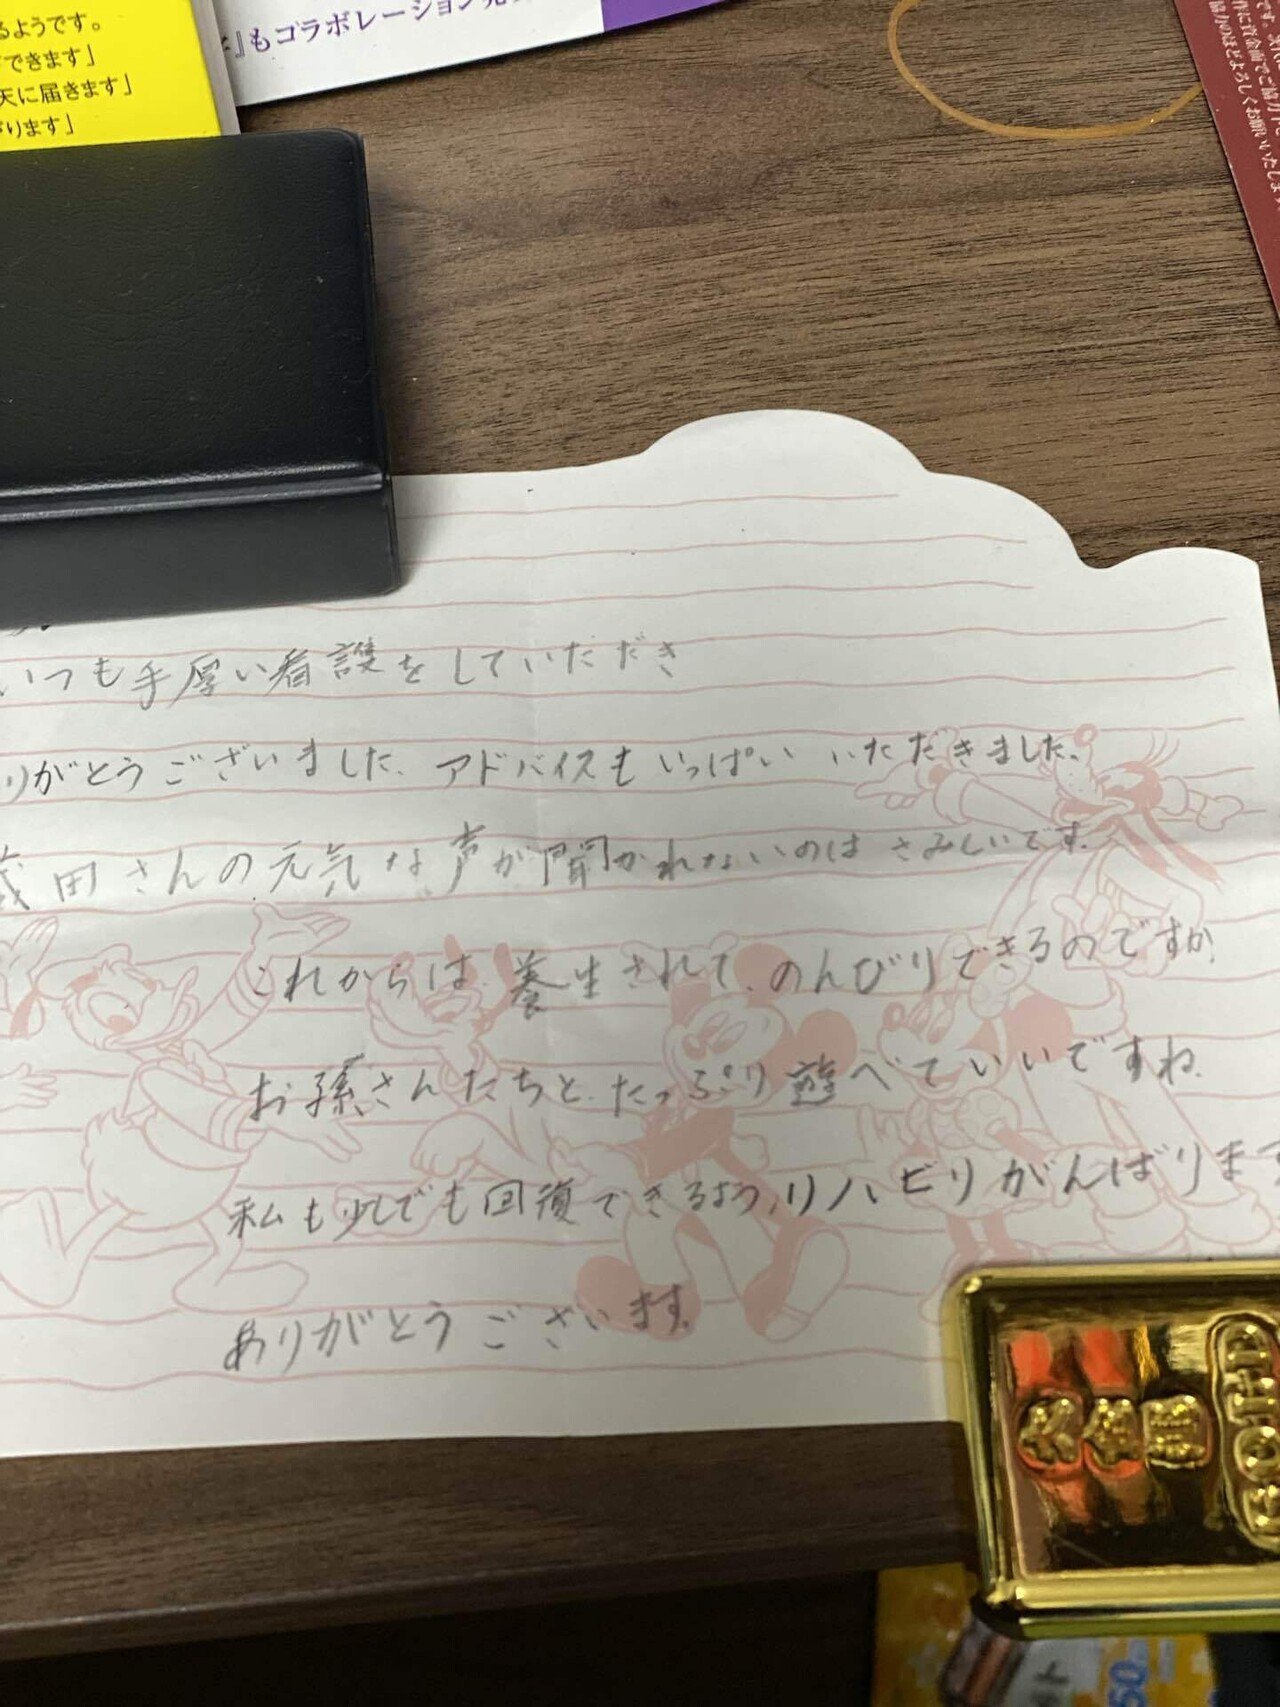 るようです。
できます」
天に届きます」
ります」
』もコラボレーション
協力のほどよろしくお願いいたします
いつも手厚い看護をしていただき
りがとうございました、アドバイスもいっぱい いただきました。
田さんの元気な声が聞かれないのは さみしいです。
これからは、養生されて、のんびりできるのですか、
お孫さんたちと、たっぷり遊べていいですね、
私も少しでも回復できるよう、リハビリがんばります
ありがとうございます。
GOLD